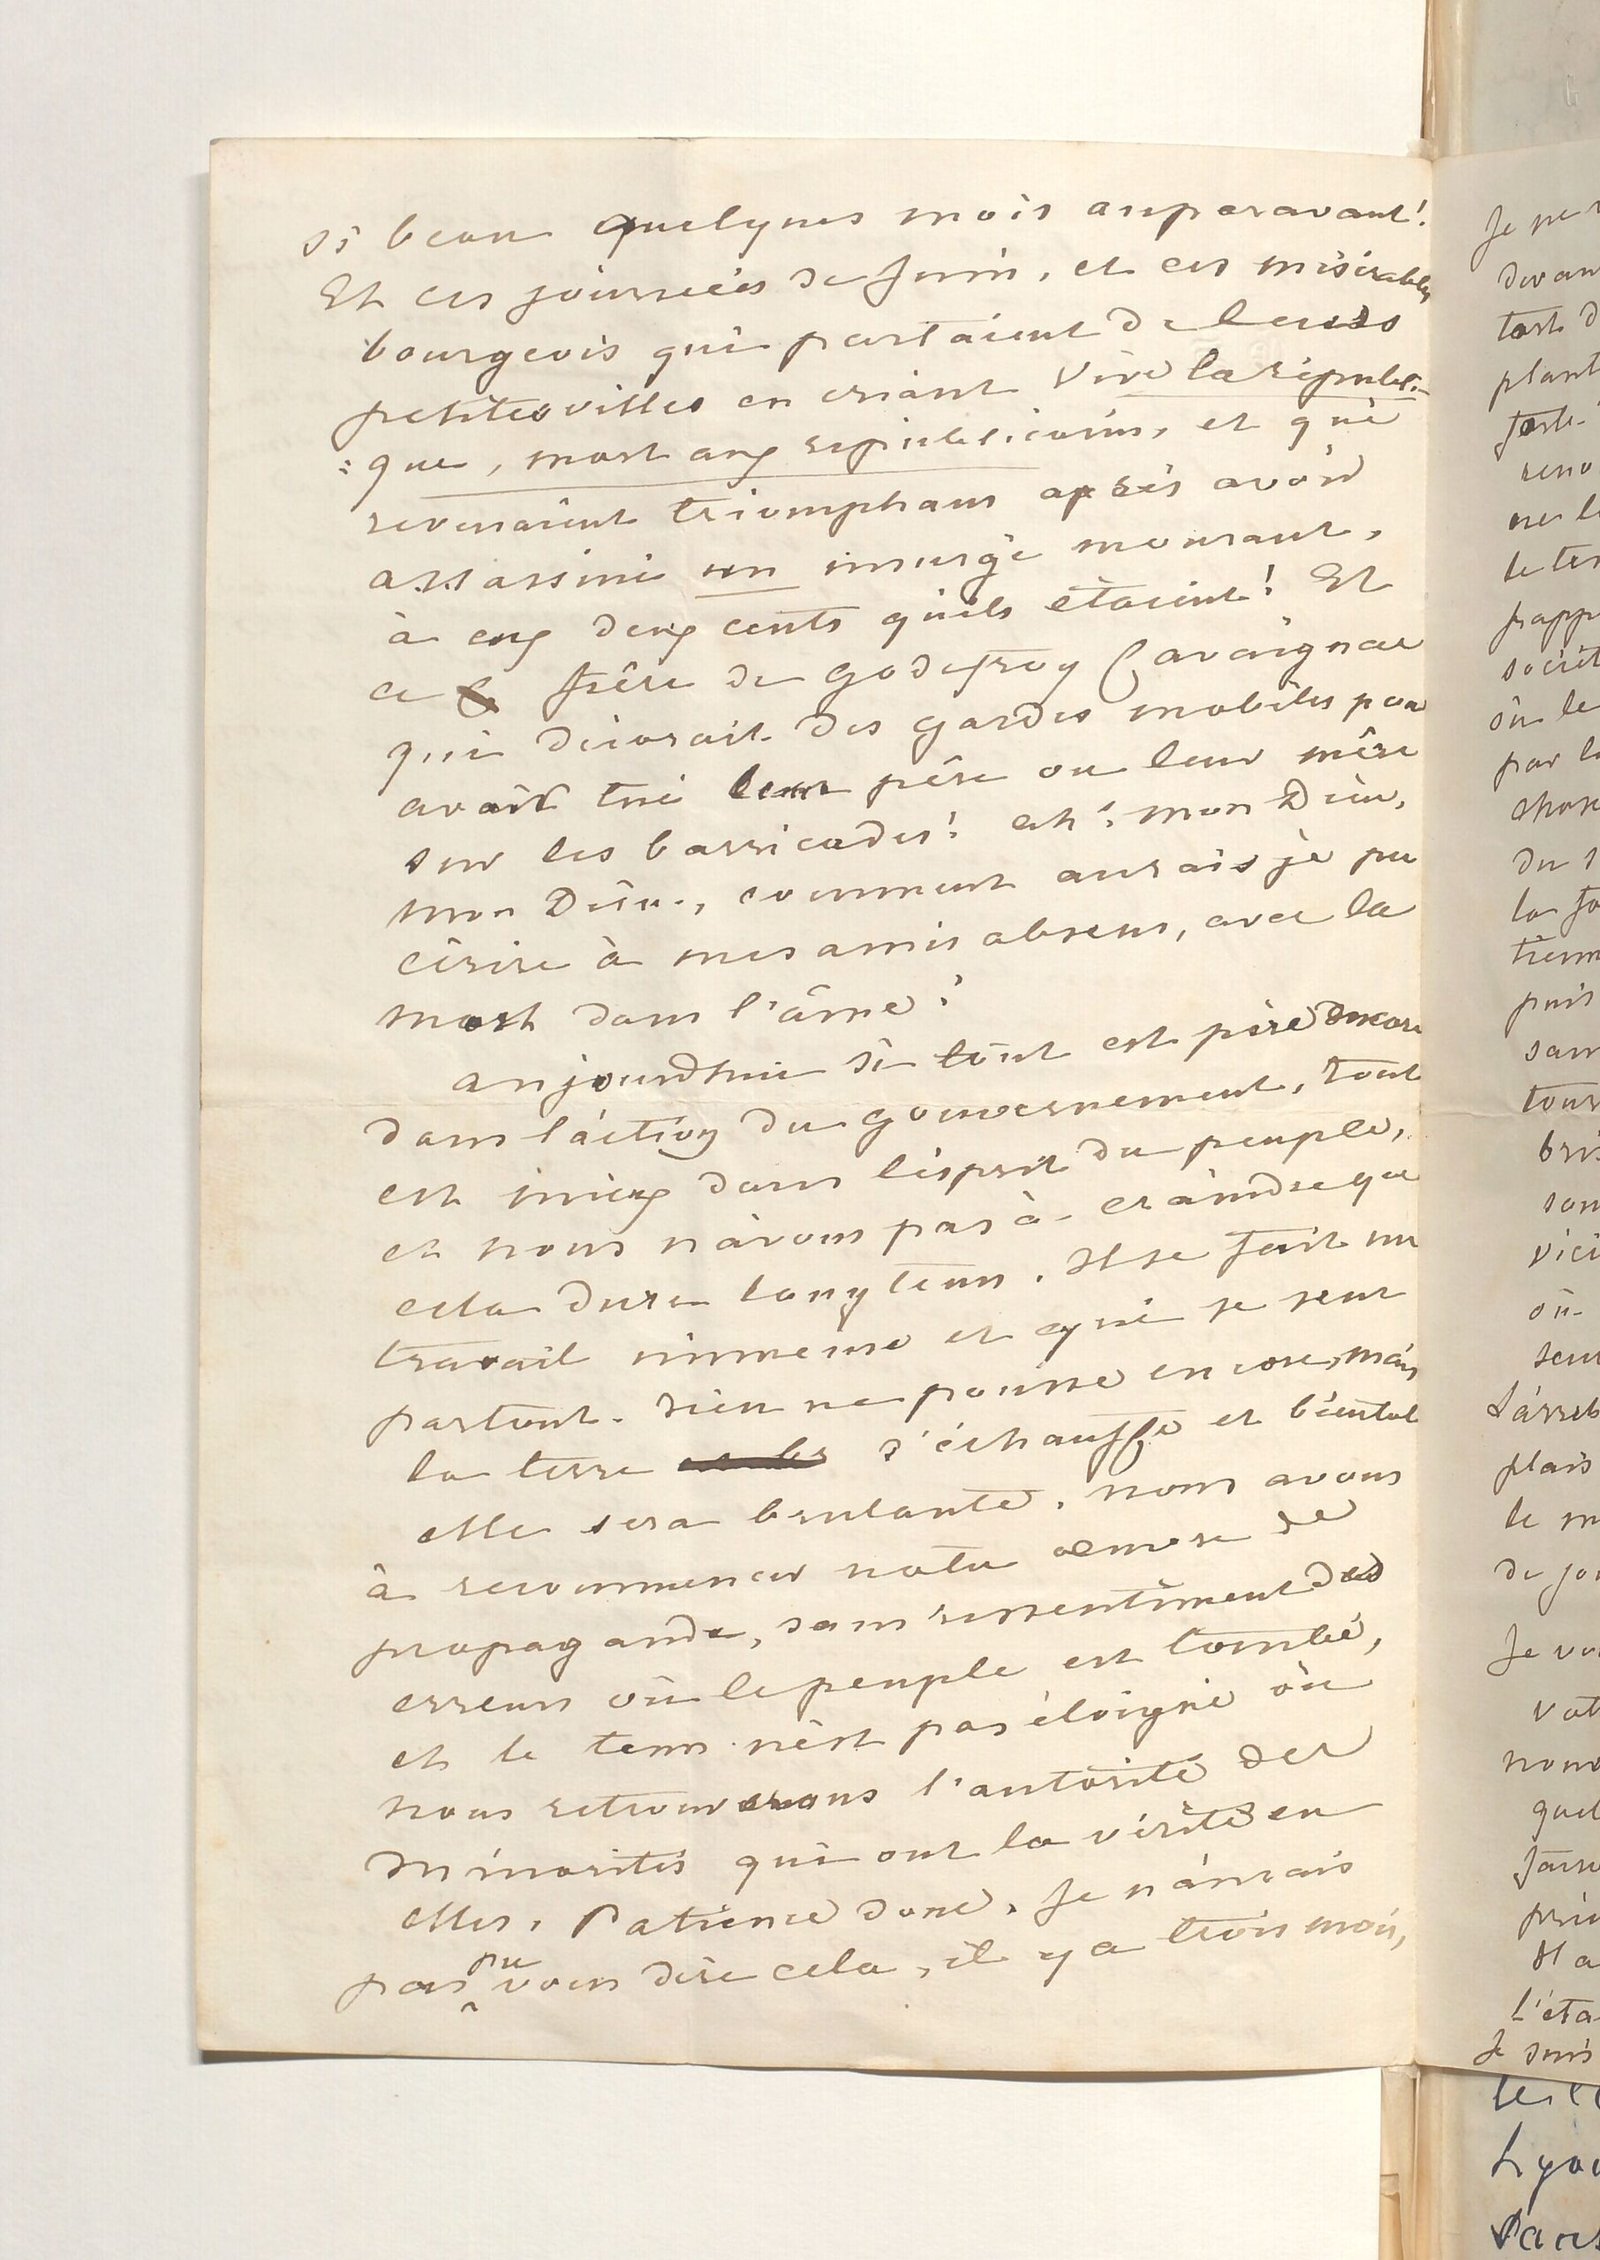 si beau quelques mois auparavant!
Et ces journées de Juin, et ces misérables
bourgeois qui partaient de leurs
petites villes en criant Vive la républi-
:que, mort aux républicains, et qui
revenaient triomphans après avoir
assassiné un insurgé mourant,
à eux deux cents qu'ils étaient! Et
ce frère de Godefroy Cavaignac
qui décorait des gardes mobiles pour
avoir tué leur père ou leur mère
sur les barricades! ah! mon Dieu,
mon Dieu, comment aurais je pu
écrire à mes amis absens, avec la
mort dans l'âme!
aujourdhui si tout est pire encore
dans l'action du gouvernement, tout
est mieux dans l'esprit du peuple,
et nous n'avons pas à craindre que
cela dure longtems. Il se fait un
travail immense et qui se sent
partout. rien ne pousse encore, mais
la terre s'échauffe et bientot
elle sera brulante. nous avons
à recommencer notre œuvre de
propagande, sans ressentiment des
erreurs où le peuple est tombé,
et le tems n'est pas éloigné où
nous retrouverons l'autorité des
minorités qui ont la vérité en
elles. Patience donc. Je n'aurais
pas pu vous dire cela, il y a trois mois,
Je ne
plant
le ter
société
où le
par le
du s
puis
où
plais
le m
de jou
Je vou
quel
Il a
L'éta
Je suis